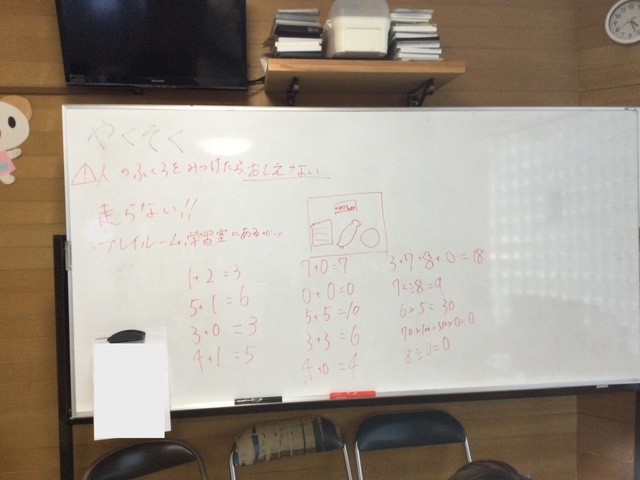 やくそく
人のふくろをみつけたらおしえない
走らない!!
・プレイルーム、学習室にある
1+2=3
5+1=6
3+0=3
4+1=5
7+0=7
0+0=0
5+5=10
3+3=6
4+0=4
3+7+8+0=18
6×5=30
8÷0=0